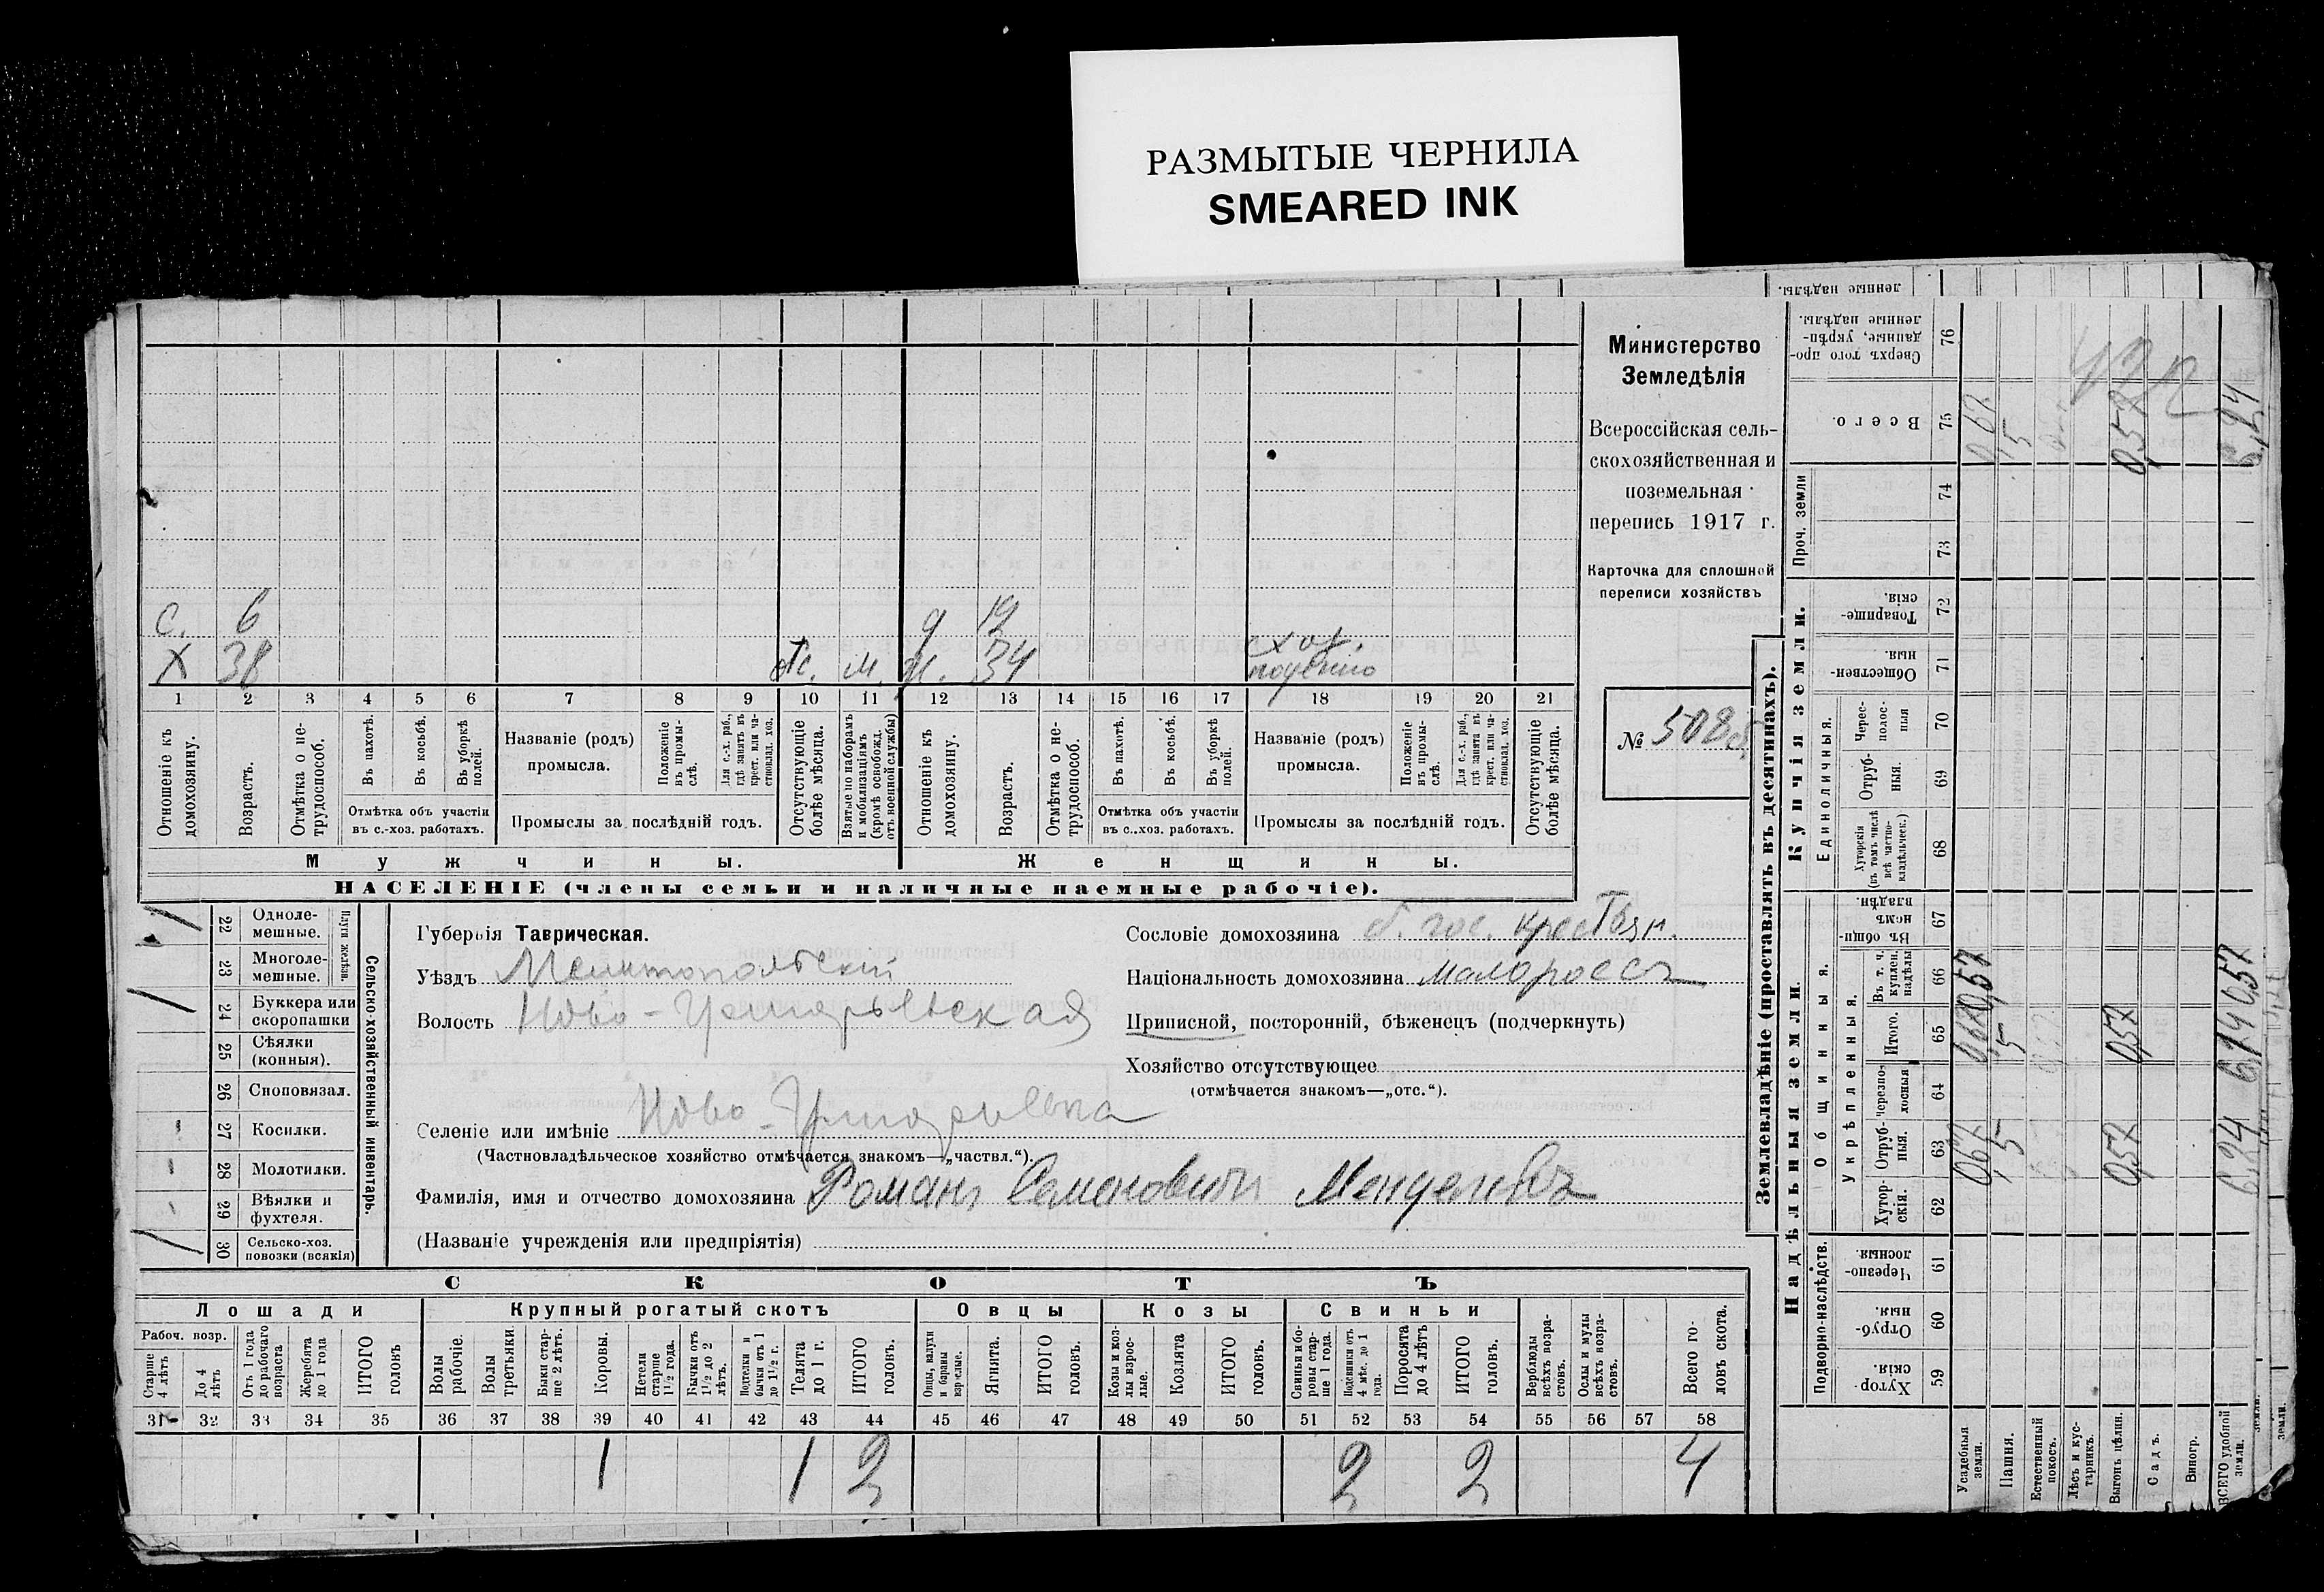 РАЗМЫТЫЕ ЧЕРНИЛА
SMEARED INK
Министерство
Земледѣлія
Всероссійская сель-
скохозяйственная и
поземельная
перепись 1917 г.
Карточка для сплошной
переписи хозяйствъ
№ 508
С. 6 19
Х 38 м. 34 поденно
1 2 3 4 5 6 7 8 9 10 11 12 13 14 15 16 17 18 19 20 21
Отношеніе къ домохозяину.
Возрастъ.
Отмѣтка о не-трудоспособ.
Въ пахотѣ.
Въ косьбѣ.
Въ уборкѣ полей.
Отмѣтка объ участіи
въ с.-хоз. работахъ.
Названіе (родъ)
промысла.
Положеніе въ промы-слѣ.
Для с.-х. раб., гдѣ занятъ въ крест. или ча-стновлад. хоз.
Промыслы за послѣдній годъ.
Отсутствующіе болѣе мѣсяца.
Взятые по наборамъ и мобилизаціямъ (кромѣ освобожд. отъ военной службы)
Отношеніе къ домохозяину.
Возрастъ.
Отмѣтка о не-трудоспособ.
Въ пахотѣ.
Въ косьбѣ.
Въ уборкѣ полей.
Отмѣтка объ участіи
въ с..хоз. работахъ.
Названіе (родъ)
промысла.
Положеніе въ промы-слѣ.
Для с.-х. раб., гдѣ занята въ крест. или ча-стновлад. хоз.
Промыслы за послѣдній годъ.
Отсутствующіе болѣе мѣсяца.
Мужчины.
Женщины.
НАСЕЛЕНІЕ (члены семьи и наличные наемные рабочіе).
Сельско-хозяйственный инвентарь.
Плуги желѣзн.
22 Одноле-
мешные.
23 Многоле-
мешные.
24 Буккера или
скоропашки
25 Сѣялки
(конныя).
26 Сноповязал.
27 Косилки.
28 Молотилки.
29 Вѣялки и
фухтеля.
30 Сельско-хоз.
повозки (всякія)
Губернія Таврическая.
Уѣздъ Мелитопольскій
Волость Ново-
Селеніе или имѣніе Ново-
(Частновладѣльческое хозяйство отмѣчается знакомъ—„частвл.“).
Фамилія, имя и отчество домохозяина Романъ Семеновичъ
(Названіе учрежденія или предпріятія)
Сословіе домохозяина б. гос. крестьян.
Національность домохозяина малороссъ
Приписной, посторонній, бѣженецъ (подчеркнуть)
Хозяйство отсутствующее
(отмѣчается знакомъ—„отс.“).
СКОТЪ
Лошади
Крупный рогатый скотъ
Овцы
Козы
Свиньи
Рабоч. возр.
Старше 4 лѣтъ
До 4 лѣтъ
Отъ 1 года до рабочаго возраста
Жеребята до 1 года
ИТОГО головъ
Волы рабочіе.
Волы третьяки.
Быки стар-ше 2 лѣтъ.
Коровы.
Нетели старше 1½ года.
Бычки отъ 1½ до 2 лѣтъ.
Подтелки и бычки отъ 1 до 1½ г.
Телята до 1 г.
ИТОГО головъ.
Овцы, валухи и бараны взрослые.
Ягнята.
ИТОГО головъ.
Козы и коз-лы взрос-лые.
Козлята
ИТОГО головъ.
Свиньи и бо-ровы стар-ше 1 года.
Подсвинки отъ 4 мѣс. до 1 года.
Поросята
ИТОГО головъ.
Верблюды всѣхъ возра-стовъ.
Ослы и мулы всѣхъ возра-стовъ.
Всего го-ловъ скота.
31 32 33 34 35 36 37 38 39 40 41 42 43 44 45 46 47 48 49 50 51 52 53 54 55 56 57 58
1 1 2 2 2 4
Землевладѣніе (проставлять въ десятинахъ).
Купчія земли.
Надѣльныя земли.
Проч. земли
Единоличныя.
Общинныя.
Укрѣпленныя.
Подворно-наслѣдств.
Сверхъ того про-данные, укрѣп-ленные надѣлы. 76
Всего. 75
74
73
Товарище-скія. 72
Обществен-ныя. 71
Черес-полос-ныя 70
Отруб-ныя. 69
Хуторскія (въ томъ числѣ всѣ частно-владѣльческ.) 68
Въ общин-номъ владѣн. 67
Въ т. ч. куплен. надѣлы 66
Итого. 65
Черезпо-лосныя 64
Отруб-ныя. 63
Хутор-скія. 62
Черезпо-лосныя 61
Отруб-ныя. 60
Хутор-скія. 59
Усадебныя земли.
Пашня.
Естественный покосъ.
Лѣсъ и кус-тарникъ.
Выгонъ цѣлин.
Садъ.
Виногр.
ВСЕГО удобной земли.
0,67 5 0,57 6,24